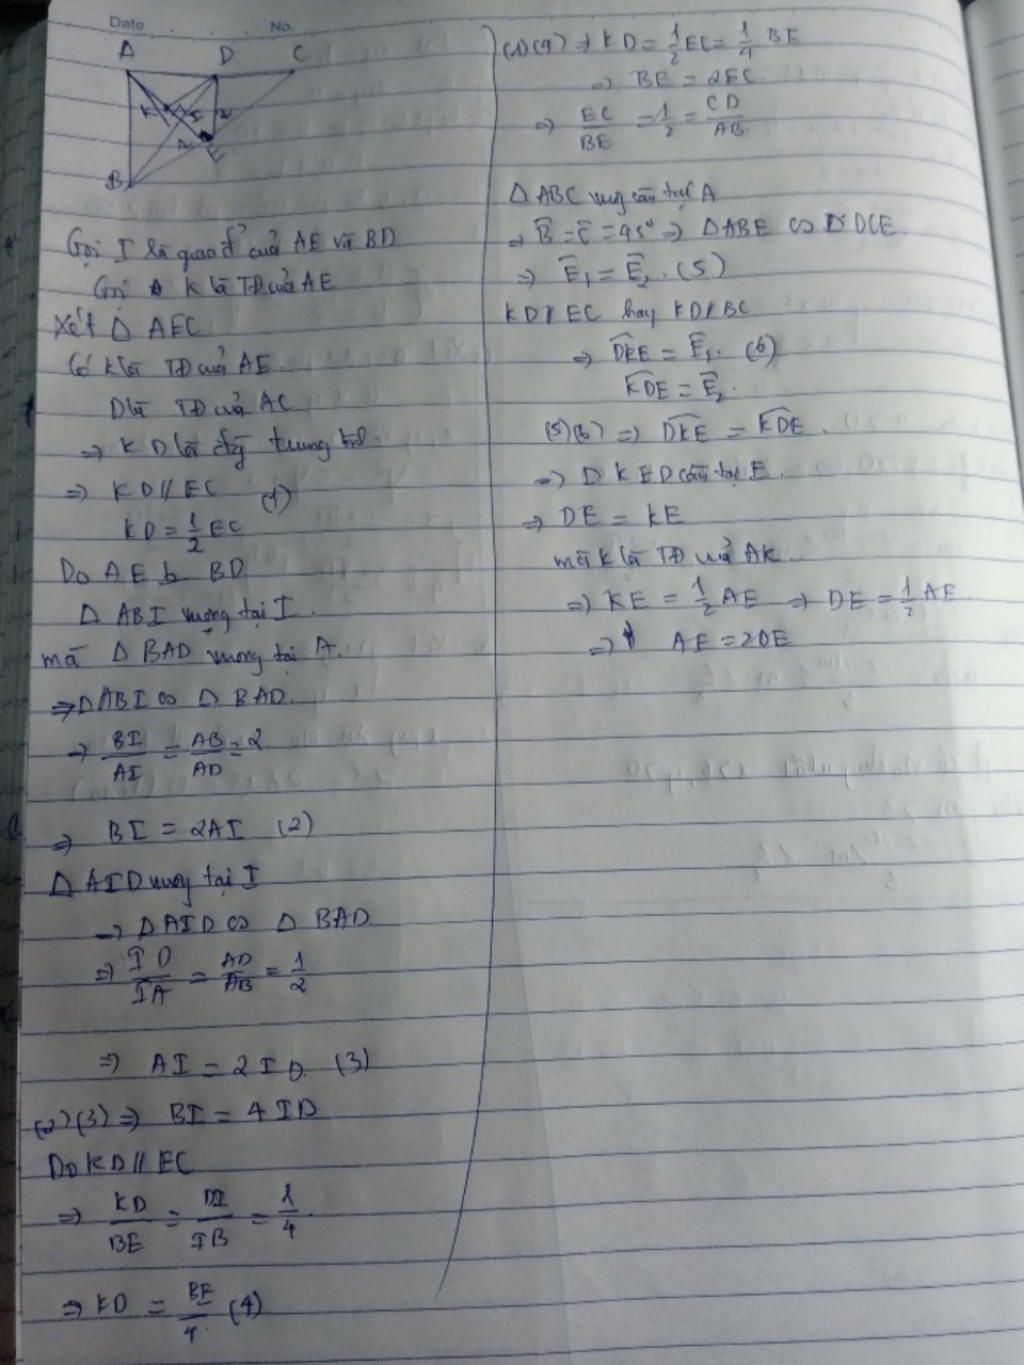 Date No.
A D C
K
B E
Gọi I là giao đ' của AE và BD
Gọi K là TĐ của AE
Xét Δ AEC
Có K là TĐ của AE
D là TĐ của AC
=> KD là đg trung bình.
=> KD // EC (1)
KD = 1/2 EC
Do AE ⊥ BD
Δ ABI vuông tại I.
mà Δ BAD vuông tại A.
=> Δ ABI ∽ Δ BAD.
=> BI/AI = AB/AD = 2
=> BI = 2AI (2)
Δ AID vuông tại I
=> Δ AID ∽ Δ BAD.
=> ID/IA = AD/AB = 1/2
=> AI = 2ID. (3)
(2)(3) => BI = 4ID
Do KD // EC
=> KD/BE = DI/IB = 1/4.
=> KD = BE/4 (4)
(1)(4) => KD = 1/2 EC = 1/4 BE
=> BE = 2EC.
=> EC/BE = 1/2 = CD/AB
Δ ABC vuông cân tại A
=> B = C = 45° => Δ ABE ∽ Δ DCE.
=> E1 = E2. (5)
KD // EC hay KD // BC
=> DKE = E1. (6)
KDE = E2.
(5)(6) => DKE = KDE.
=> Δ KED cân tại E.
=> DE = KE
mà K là TĐ của AK.
=> KE = 1/2 AE => DE = 1/2 AE
=> AE = 2DE